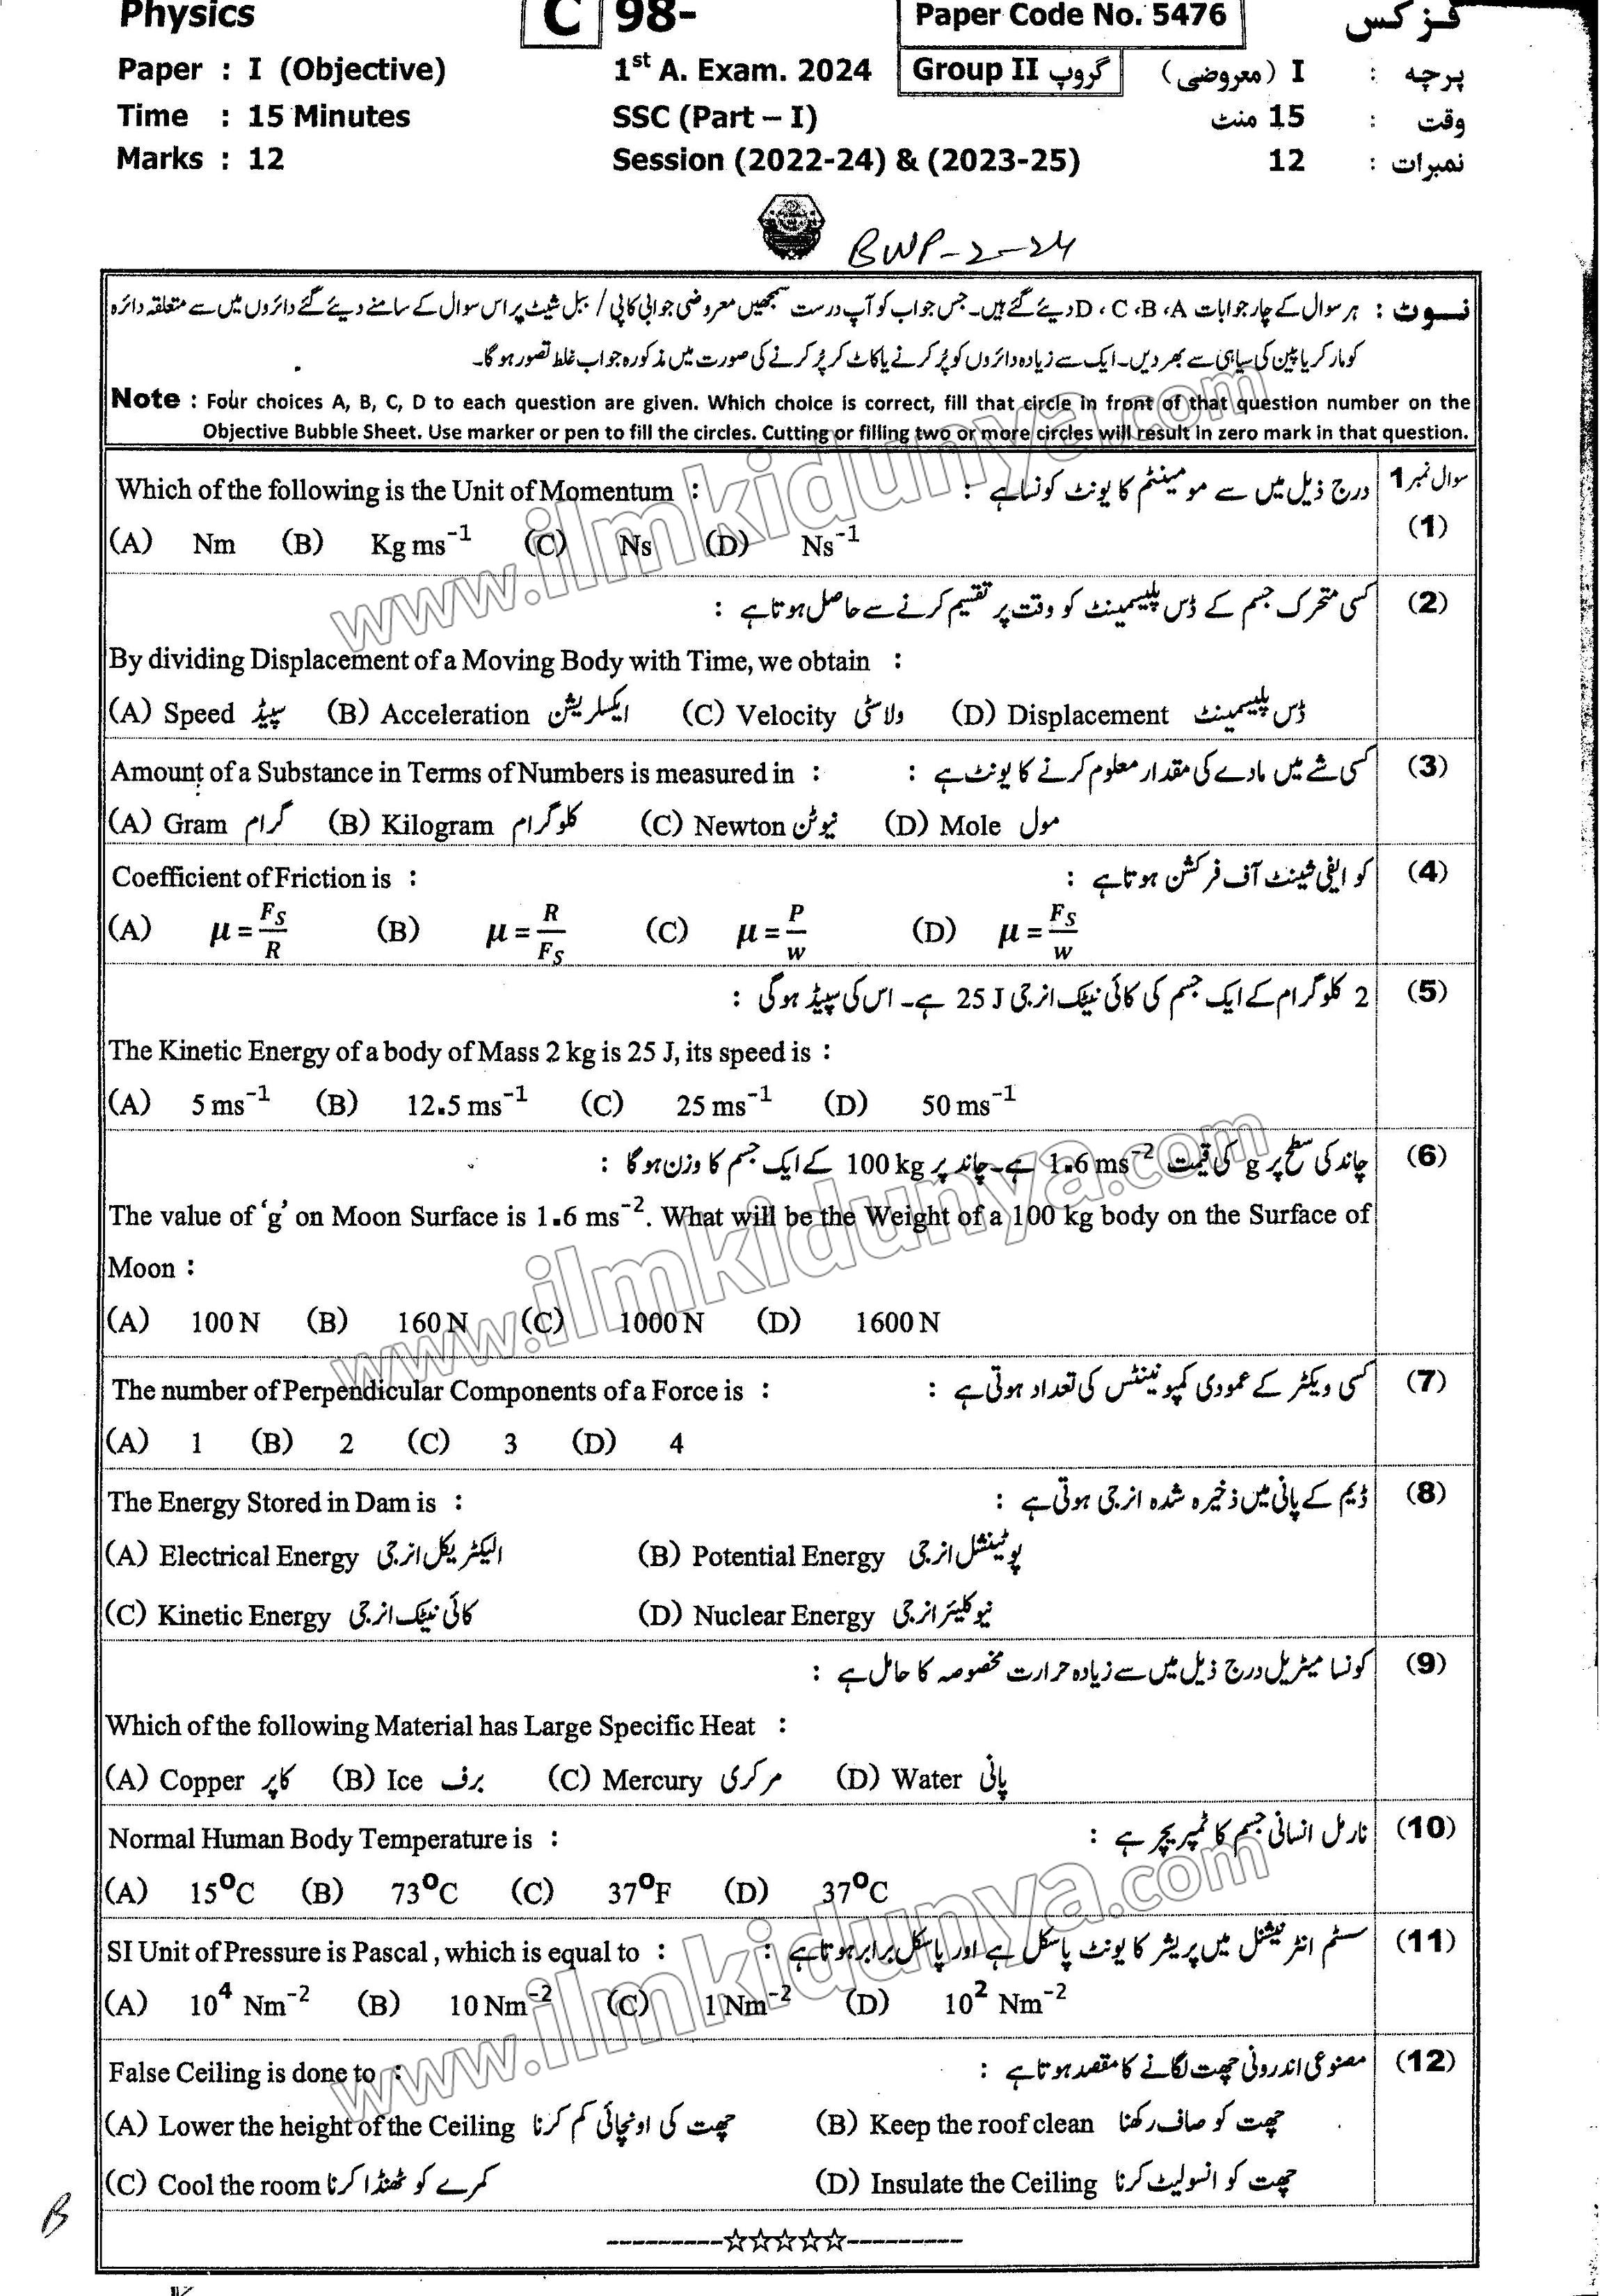 Physics C 98- Paper Code No. 5476 فزکس
Paper : I (Objective) 1st A. Exam. 2024 Group II گروپ پرچہ : I (معروضی)
Time : 15 Minutes SSC (Part – I) وقت : 15 منٹ
Marks : 12 Session (2022-24) & (2023-25) نمبرات : 12
BWP-2-24
نوٹ : ہر سوال کے چار جوابات A، B، C، D دیئے گئے ہیں۔ جس جواب کو آپ درست سمجھیں معروضی جوابی کاپی / ببل شیٹ پر اس سوال کے سامنے دیئے گئے دائروں میں سے متعلقہ دائرہ
کو مارکر یا پین کی سیاہی سے بھر دیں۔ ایک سے زیادہ دائروں کو پُر کرنے یا کاٹ کر پُر کرنے کی صورت میں مذکورہ جواب غلط تصور ہو گا۔
Note : Four choices A, B, C, D to each question are given. Which choice is correct, fill that circle in front of that question number on the
Objective Bubble Sheet. Use marker or pen to fill the circles. Cutting or filling two or more circles will result in zero mark in that question.
Which of the following is the Unit of Momentum : درج ذیل میں سے مومینٹم کا یونٹ کونسا ہے : سوال نمبر 1
(A) Nm (B) Kg ms⁻¹ (C) Ns (D) Ns⁻¹ (1)
کسی متحرک جسم کے ڈس پلیسمینٹ کو وقت پر تقسیم کرنے سے حاصل ہوتا ہے : (2)
By dividing Displacement of a Moving Body with Time, we obtain :
(A) Speed سپیڈ (B) Acceleration ایکسلریشن (C) Velocity ولاسٹی (D) Displacement ڈس پلیسمینٹ
Amount of a Substance in Terms of Numbers is measured in : کسی شے میں مادے کی مقدار معلوم کرنے کا یونٹ ہے : (3)
(A) Gram گرام (B) Kilogram کلوگرام (C) Newton نیوٹن (D) Mole مول
Coefficient of Friction is : کو ایفی شینٹ آف فرکشن ہوتا ہے : (4)
(A) μ = Fs/R (B) μ = R/Fs (C) μ = P/w (D) μ = Fs/w
2 کلوگرام کے ایک جسم کی کائی نیٹک انرجی 25 J ہے۔ اس کی سپیڈ ہوگی : (5)
The Kinetic Energy of a body of Mass 2 kg is 25 J, its speed is :
(A) 5 ms⁻¹ (B) 12.5 ms⁻¹ (C) 25 ms⁻¹ (D) 50 ms⁻¹
چاند کی سطح پر g کی قیمت 1.6 ms⁻² ہے۔ چاند پر 100 kg کے ایک جسم کا وزن ہوگا : (6)
The value of ‘g’ on Moon Surface is 1.6 ms⁻². What will be the Weight of a 100 kg body on the Surface of
Moon :
(A) 100 N (B) 160 N (C) 1000 N (D) 1600 N
The number of Perpendicular Components of a Force is : کسی ویکٹر کے عمودی کمپونینٹس کی تعداد ہوتی ہے : (7)
(A) 1 (B) 2 (C) 3 (D) 4
The Energy Stored in Dam is : ڈیم کے پانی میں ذخیرہ شدہ انرجی ہوتی ہے : (8)
(A) Electrical Energy الیکٹریکل انرجی (B) Potential Energy پوٹینشل انرجی
(C) Kinetic Energy کائی نیٹک انرجی (D) Nuclear Energy نیوکلیئر انرجی
کونسا میٹریل درج ذیل میں سے زیادہ حرارت مخصوصہ کا حامل ہے : (9)
Which of the following Material has Large Specific Heat :
(A) Copper کاپر (B) Ice برف (C) Mercury مرکری (D) Water پانی
Normal Human Body Temperature is : نارمل انسانی جسم کا ٹمپریچر ہے : (10)
(A) 15°C (B) 73°C (C) 37°F (D) 37°C
SI Unit of Pressure is Pascal, which is equal to : سسٹم انٹرنیشنل میں پریشر کا یونٹ پاسکل ہے اور پاسکل برابر ہوتا ہے : (11)
(A) 10⁴ Nm⁻² (B) 10 Nm⁻² (C) 1 Nm⁻² (D) 10² Nm⁻²
False Ceiling is done to : مصنوعی اندرونی چھت لگانے کا مقصد ہوتا ہے : (12)
(A) Lower the height of the Ceiling چھت کی اونچائی کم کرنا (B) Keep the roof clean چھت کو صاف رکھنا
(C) Cool the room کمرے کو ٹھنڈا کرنا (D) Insulate the Ceiling چھت کو انسولیٹ کرنا
---------☆☆☆☆☆---------
B
www.ilmkidunya.com
www.ilmkidunya.com
www.ilmkidunya.com